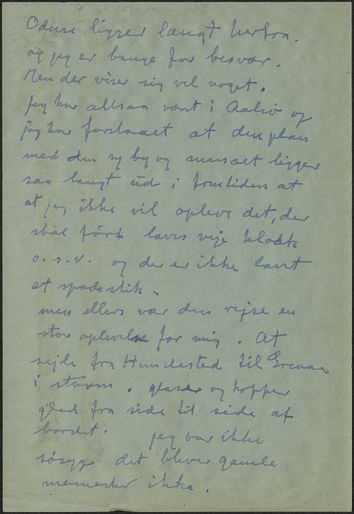 Odense ligger langt herfra.
og jeg er bange for besvær.
Men der viser sig vel noget.
Jeg har altsaa vært i Aalsø og
jeg har forstaaet at den plan
med den ny by og museet ligger
saa langt ud i fremtiden at
at jeg ikke vil opleve det, der
skal først laves veje kloak
o.s.v. og der er ikke lavet
et spadestik.
men ellers var den rejse en
stor oplevelse for mig. At
sejle fra Hundested til Grenaa
i storm. glas og kopper
gled fra side til side af
bordet. jeg var ikke
søsyg det bliver gamle
mennesker ikke.